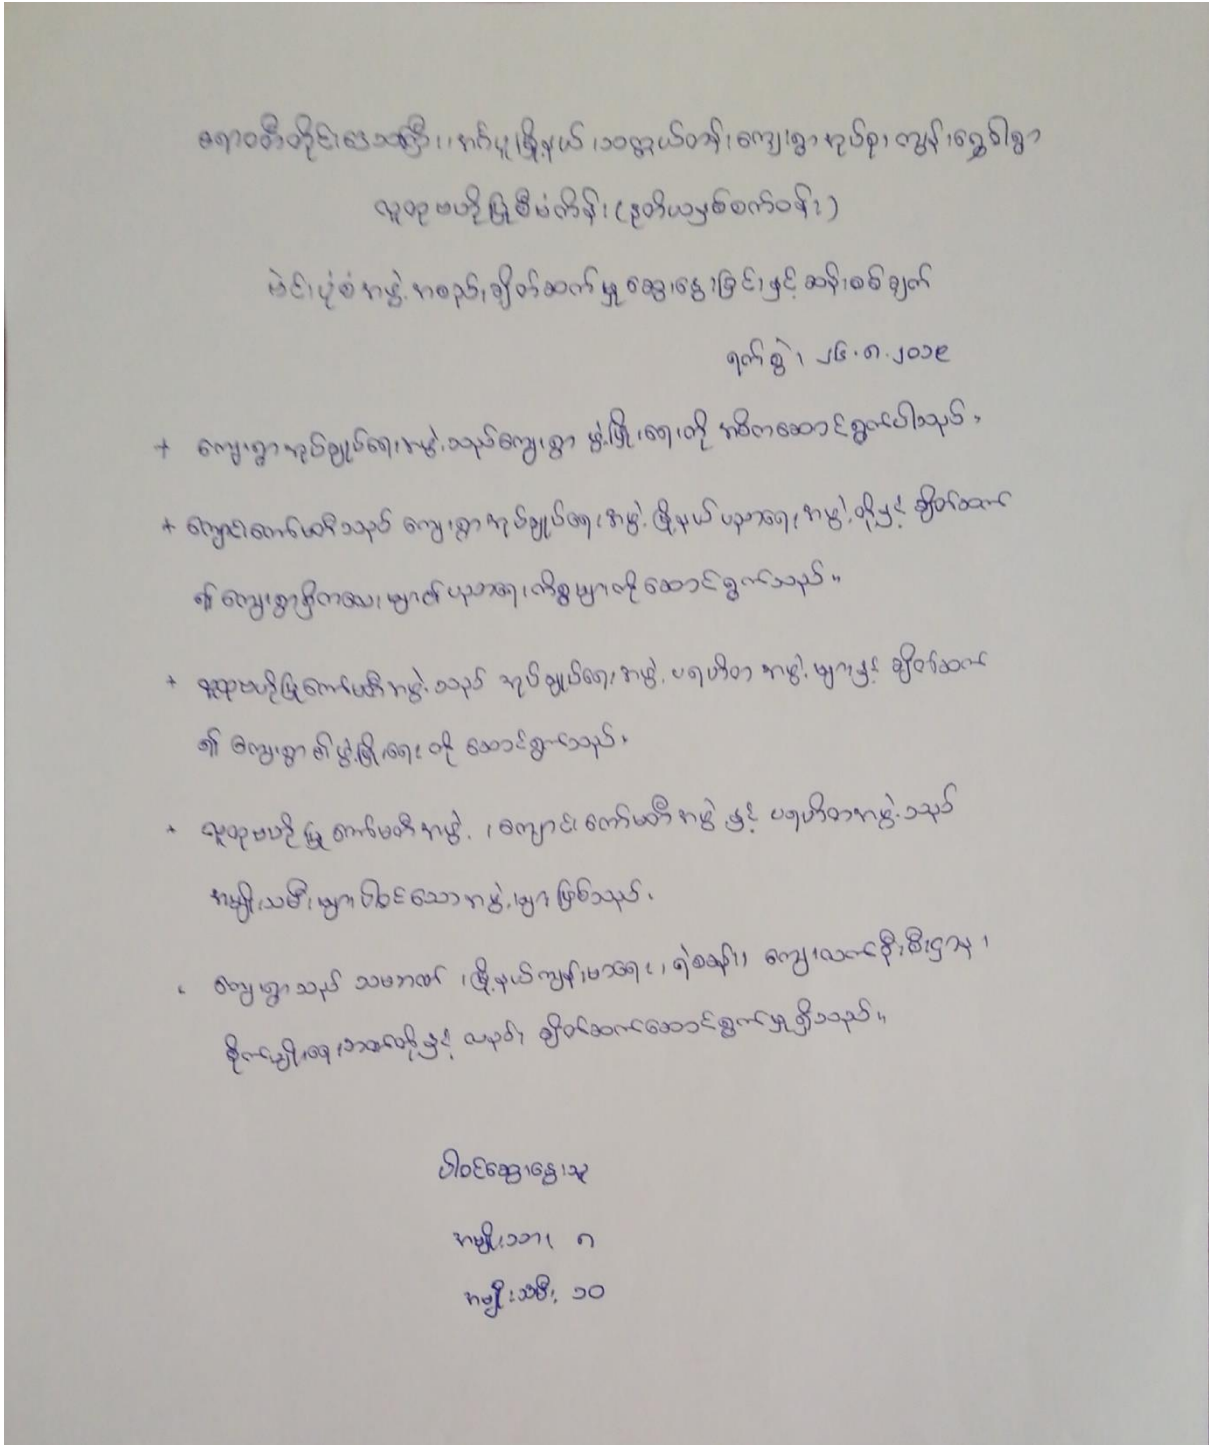 ဧရာဝတီတိုင်းဒေသကြီး၊ အင်္ဂပူမြို့နယ်၊ သဝဏ္ဏယ်တန်းကျေးရွာအုပ်စု၊ ကျွန်းရွှေဝါရွာ
လူထုဗဟိုပြုစီမံကိန်း (ဒုတိယနှစ်စက်ဝန်း)
ဗဲင်းပုံစံအဖွဲ့အစည်းချိတ်ဆက်မှု ဆွေးနွေးခြင်းနှင့် ဆန်းစစ်ချက်
ရက်စွဲ၊ ၂၆.၈.၂၀၁၉
+ ကျေးရွာအုပ်ချုပ်ရေးအဖွဲ့သည်ကျေးရွာ ဖွံ့ဖြိုးရေးကို အဓိကဆောင်ရွက်ပါသည်။
+ ကျောင်းကော်မတီသည် ကျေးရွာအုပ်ချုပ်ရေးအဖွဲ့၊ မြို့နယ်ပညာရေးအဖွဲ့တို့နှင့် ချိတ်ဆက်
၍ ကျေးရွာရှိကလေးများ၏ ပညာရေးကိစ္စများကိုဆောင်ရွက်သည်။
+ လူထုဗဟိုပြုကော်မတီအဖွဲ့သည် အုပ်ချုပ်ရေးအဖွဲ့၊ ပရဟိတအဖွဲ့များနှင့် ချိတ်ဆက်
၍ ကျေးရွာ၏ဖွံ့ဖြိုးရေးကို ဆောင်ရွက်သည်။
+ လူထုဗဟိုပြုကော်မတီအဖွဲ့၊ ကျောင်းကော်မတီအဖွဲ့နှင့် ပရဟိတအဖွဲ့သည်
အမျိုးသမီးများပါဝင်သောအဖွဲ့များဖြစ်သည်။
ကျေးရွာသည် သမဘဏ်၊ မြို့နယ်ကျန်းမာရေး၊ ရဲစခန်း၊ ကျေးလက်ဦးစီးဌာန၊
စိုက်ပျိုးရေးဘဏ်တို့နှင့် လည်း ချိတ်ဆက်ဆောင်ရွက်မှုရှိသည်။
ပါဝင်ဆွေးနွေးသူ
အမျိုးသား ၈
အမျိုးသမီး ၁၀